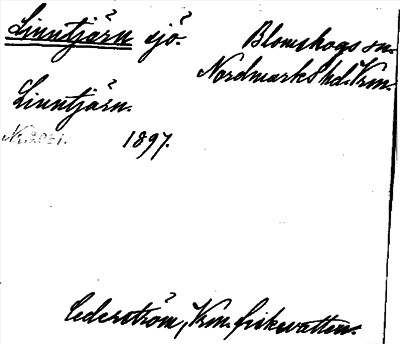 Linntjärn sjö.
Blomskogs sn.
Nordmarks hd. Vrm.
Linntjärn.
1897.
Cederström, Vrm. fiskvatten.